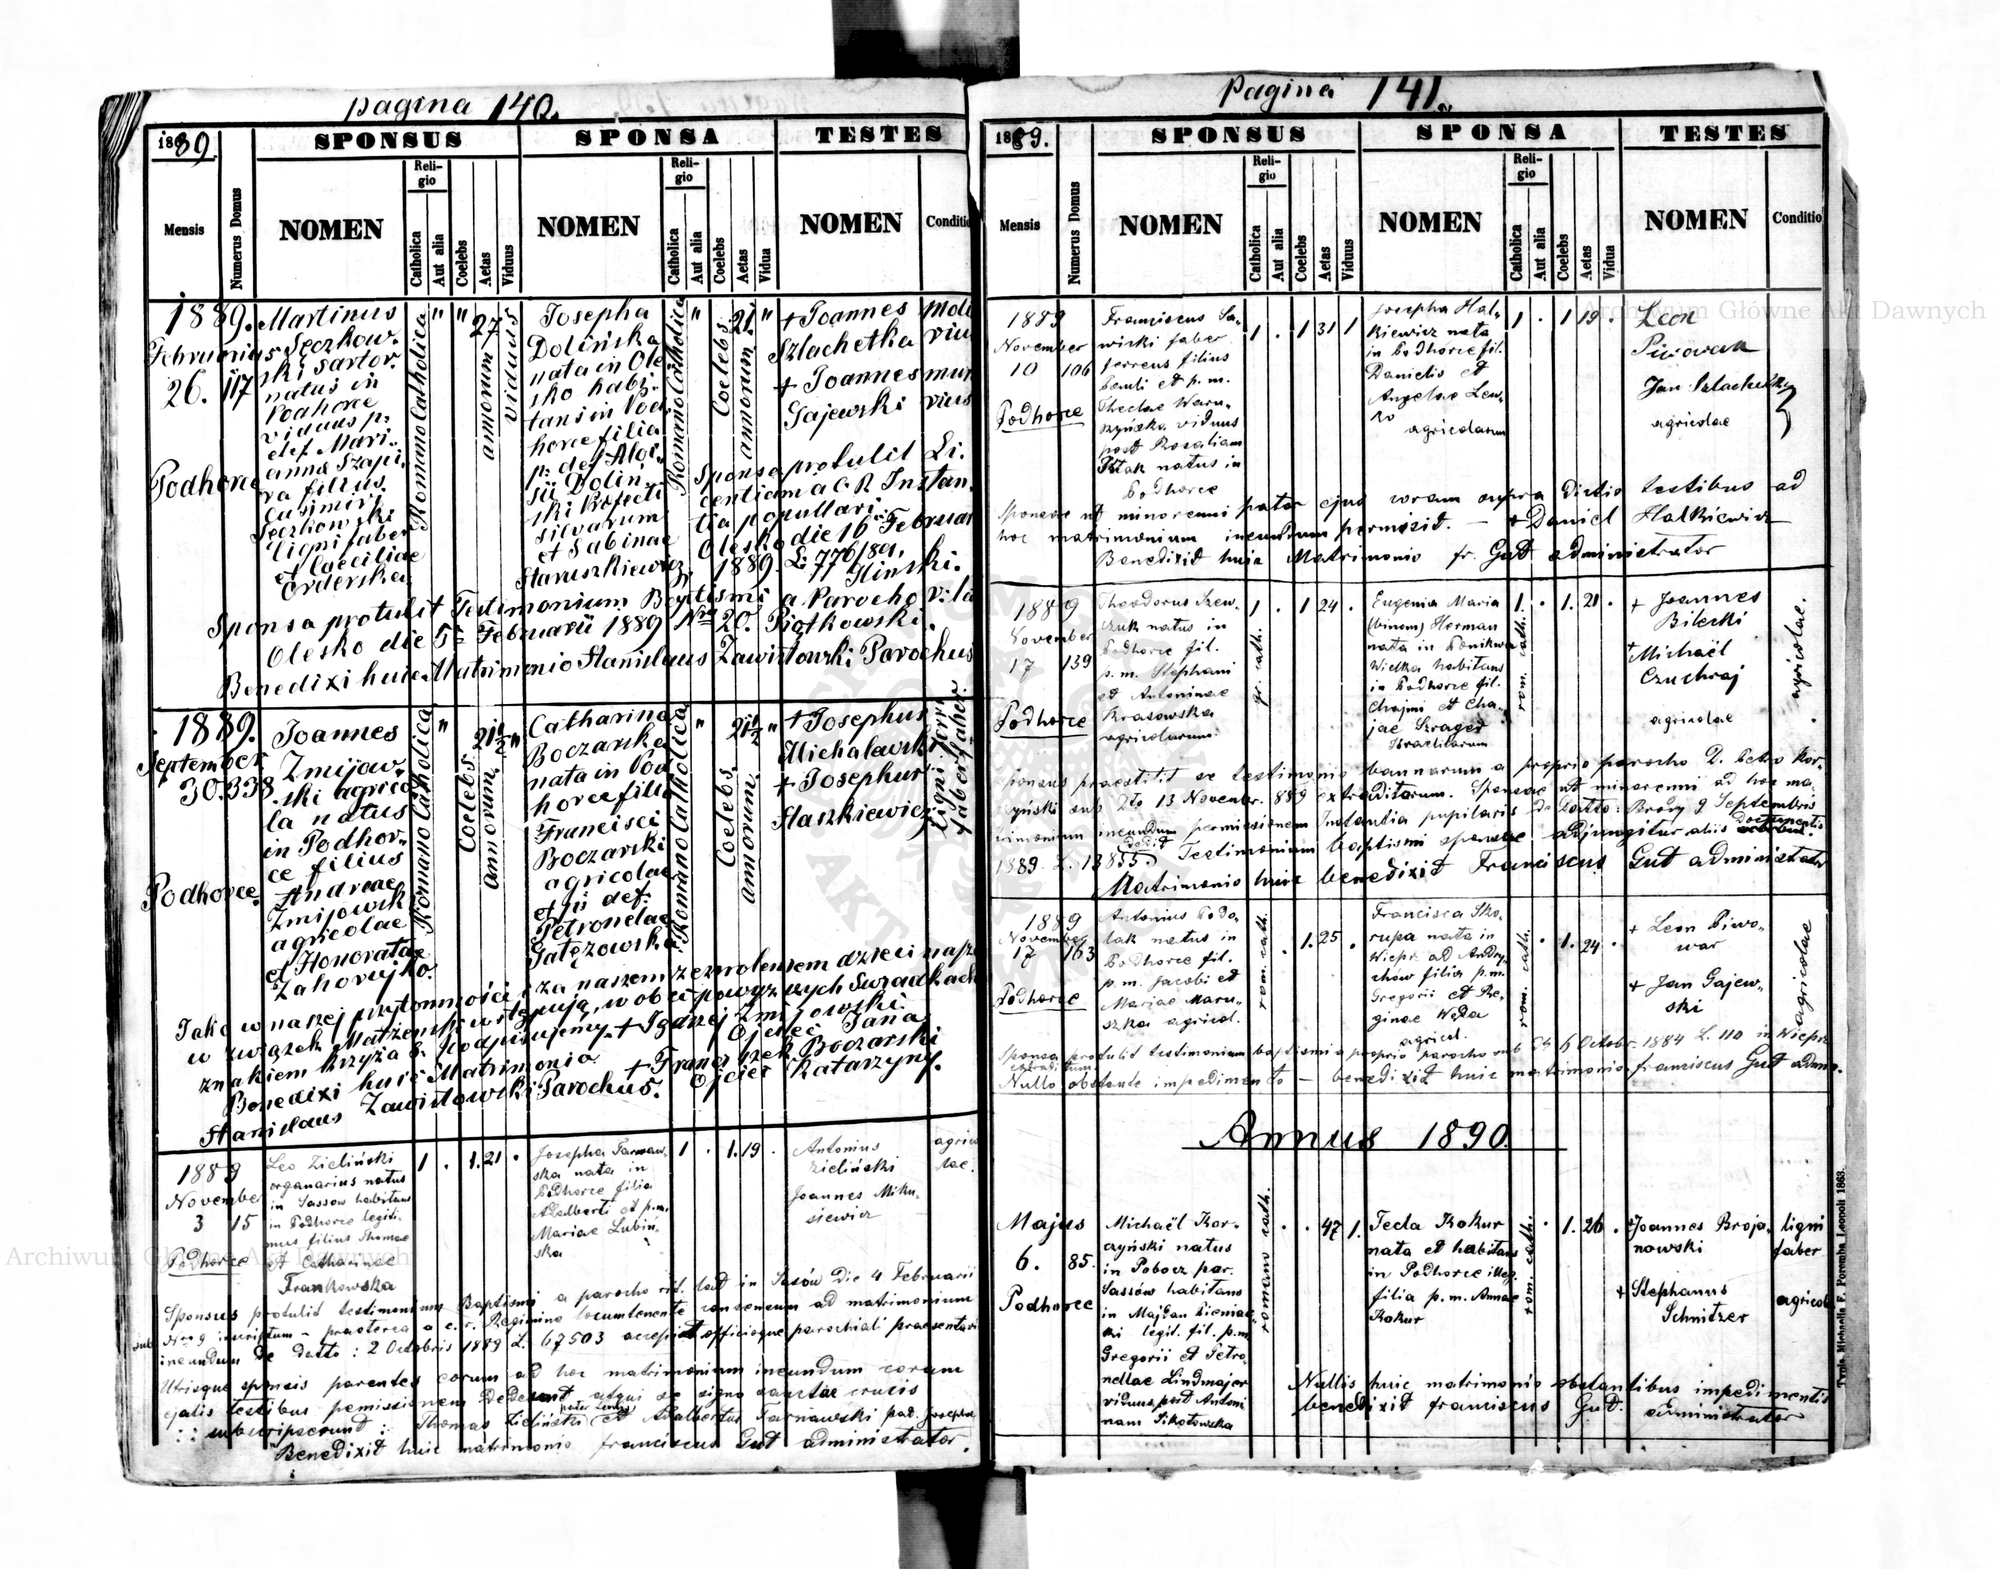 pagina 140.
1889.
SPONSUS
SPONSA
TESTES
Mensis
Numerus Domus
NOMEN
Religio
Catholica
Aut alia
Coelebs
Aetas
Viduus
NOMEN
Religio
Catholica
Aut alia
Coelebs
Aetas
Vidua
NOMEN
Conditio
1889.
Februarius
26. 117
Podhorce
Martinus
Seczkow-
ski Sartor
natus in
Podhorce
viduus p.
def. Mari-
anna Szapi-
ra filius
Casimiri
Seczkowski
ligni faber
et Caeciliae
Orderska
Romano Catholica
"
"
27
annorum
viduus
Josepha
Dolińska
nata in Ole-
sko habi-
tans in Pod-
horce filia
p. def. Aloi-
sii Dolin-
ski Prefecti
silvarum
et Sabinae
Staruszkiewicz
Romano Catholica
Coelebs
21.
annorum
"
+ Joannes
Szlachetka
+ Joannes
Gajewski
Sponsa protulit Li-
centiam a C R Instan-
tia popullari
Olesko die 16 Februar
1889. L: 776/891.
Hinski.
Sponsa protulit Testimonium Baptismi a Parocho
Olesko die 5a Februarii 1889 Nro 20. Piotkowski.
Benedixi huic Matrimonio Stanislaus Zawistowski Parochus
1889.
September
30. 338.
Podhorce.
Joannes
Zmijow-
ski agrico
la natus
in Podhor-
ce filius
Andreae
Zmijowski
agricolae
et Honoratae
Zahorejko.
Romano Catholica
"
Coelebs
21 1/2
annorum
"
Catharina
Boczarska
nata in Pod
horce filia
Francisci
Boczarski
agricolae
et jj def.
Petronelae
Gałęzowska
Romano Catholica
"
Coelebs
21 1/2
annorum
"
+ Josephus
Michalewski
+ Josephus
Staszkiewicz
Jako w naszej przytomności i za naszem zezwoleniem dzieci nasze
w związek Małżeński wstępują, w obec powyższych Swiadkach
znakiem krzyża S. podpisujemy. + Jędrzej Zmijowski.
Ojciec Jana
Benedixi huic Matrimonio + Franciszek Boczarski
Stanislaus Zawistowski Parochus. Ojciec Katarzyny.
1889
November
3 15
Podhorce
Leo Zieliński
organarius natus
in Sassow habitans
in Podhorce legiti-
mus filius Thomae
et Catharinae
Frankowska
1 . 1. 21 .
Josepha Tarnaw-
ska nata in
Podhorce filia
Adalberti et p.m.
Mariae Lubiń-
ska
1 . 1. 19 .
Antonius
Zieliński
Joannes Miku-
siewicz
agrico
lae.
Sponsus protulit testimonium Baptismi a parocho rit. lat in Sasów die 4 Februarii
sub Nro 9 scriptum – praeterea a c. r. Regimine locumtenente consensum ad matrimonium
ineundum de datto: 2 Octobris 1889 L. 67503 accepit officioque parochiali praesentavit
Utriusque sponsis parentes eorum ad hoc matrimonium ineundum coram
ejalis testibus permissionem dederunt atqui se signo sanctae crucis
subscripserunt: Thomas Zieliński et Adalbertus Tarnawski pat. Josephae
Benedixit huic matrimonio franciscus Gut administrator.
Pagina 141.
1889.
SPONSUS
SPONSA
TESTES
Mensis
Numerus Domus
NOMEN
Religio
Catholica
Aut alia
Coelebs
Aetas
Viduus
NOMEN
Religio
Catholica
Aut alia
Coelebs
Aetas
Vidua
NOMEN
Conditio
1889
November
10 106
Podhorce
Franciscus Sa-
wicki faber
ferreus filius
Pauli et p.m.
Theclae Waru-
szyńska viduus
post Rosaliam
Ptak natus in
Podhorce
1 . 1 31 1
Josepha Hal-
kiewicz nata
in Podhorce fil.
Danielis et
Angelae Lew-
ko
agricolarum
1 . 1 19 .
Leon
Piwowar
Jan Szlachetka
agricolae
Sponsae ut minorenni pater ejus coram supra dictis testibus ad
hoc matrimonium ineundum permisit. – + Daniel Halkiewicz
Benedixit huic Matrimonio fr. Gut administrator
1889
November
17 139
Podhorce
Theodorus Szew-
czuk natus in
Podhorce fil.
p.m. Stephani
et Antoninae
Krasowska
agricolarum
1
gr. cath.
. 1 24 .
Eugenia Maria
(binom) Herman
nata in Ponikwa
Wielka habitans
in Podhorce fil.
Chajmi et Cha-
jae Szrager
Israelitarum
1.
rom. cath.
. 1. 21 .
+ Joannes
Bilecki
+ Michaël
Czuchraj
agricolae
agricolae.
Sponsus praestitit se testimonio bannorum a proprio parocho D. Petro Kor-
czyński sub dto 13 Novembr. 889 extraditarum. Sponsae ut minorenni ad hoc ma-
trimonium ineundum permissionem Instantia pupilaris de datto: Brody 9 Septembris
1889 L. 13855 dedit Testimonium baptismi sponsae adjungitur aliis documentis
Matrimonio huic benedixit Franciscus Gut administrator
1889
November
17 163
Podhorce
Antonius Podo-
lak natus in
Podhorce fil.
p.m. Jacobi et
Mariae Maru-
szka agricol.
rom. cath.
. 1. 25 .
Francisca Sko-
rupa nata in
Wiepr. ad Andry-
chów filia p.m.
Gregorii et Re-
ginae Węda
agricol.
rom. cath.
. 1. 24 .
+ Leon Piwo-
war
+ Jan Gajew-
ski
agricolae
Sponsa protulit testimonium baptismi a proprio parocho sub dto 6 Octobr. 1884 L. 110 in Wiepr.
extraditum
Nullo obstante impedimento – benedixit huic matrimonio franciscus Gut admin.
Annus 1890
Majus
6. 85.
Podhorce
Michaël Kor-
czyński natus
in Pobocz par.
Sassów habitans
in Majdan Pieniac-
ki legit. fil. p.m.
Gregorii et Petro-
nellae Lindmajer
viduus post Antoni
nam Sikotowska
romano cath.
. . 47 1.
Tecla Kokur
nata et habitans
in Podhorce illeg.
filia p.m. Annae
Kokur
rom. cath.
. 1. 26 .
+ Joannes Broja-
nowski
ligni
faber
+ Stephanus
Schnitzer
agricola
Nullis huic matrimonio obstantibus impedimentis
benedixit franciscus Gut administrator
Typis Michaëlis F. Poremba Leopoli 1863.
Archiwum Główne Akt Dawnych
Archiwum Główne Akt Dawnych